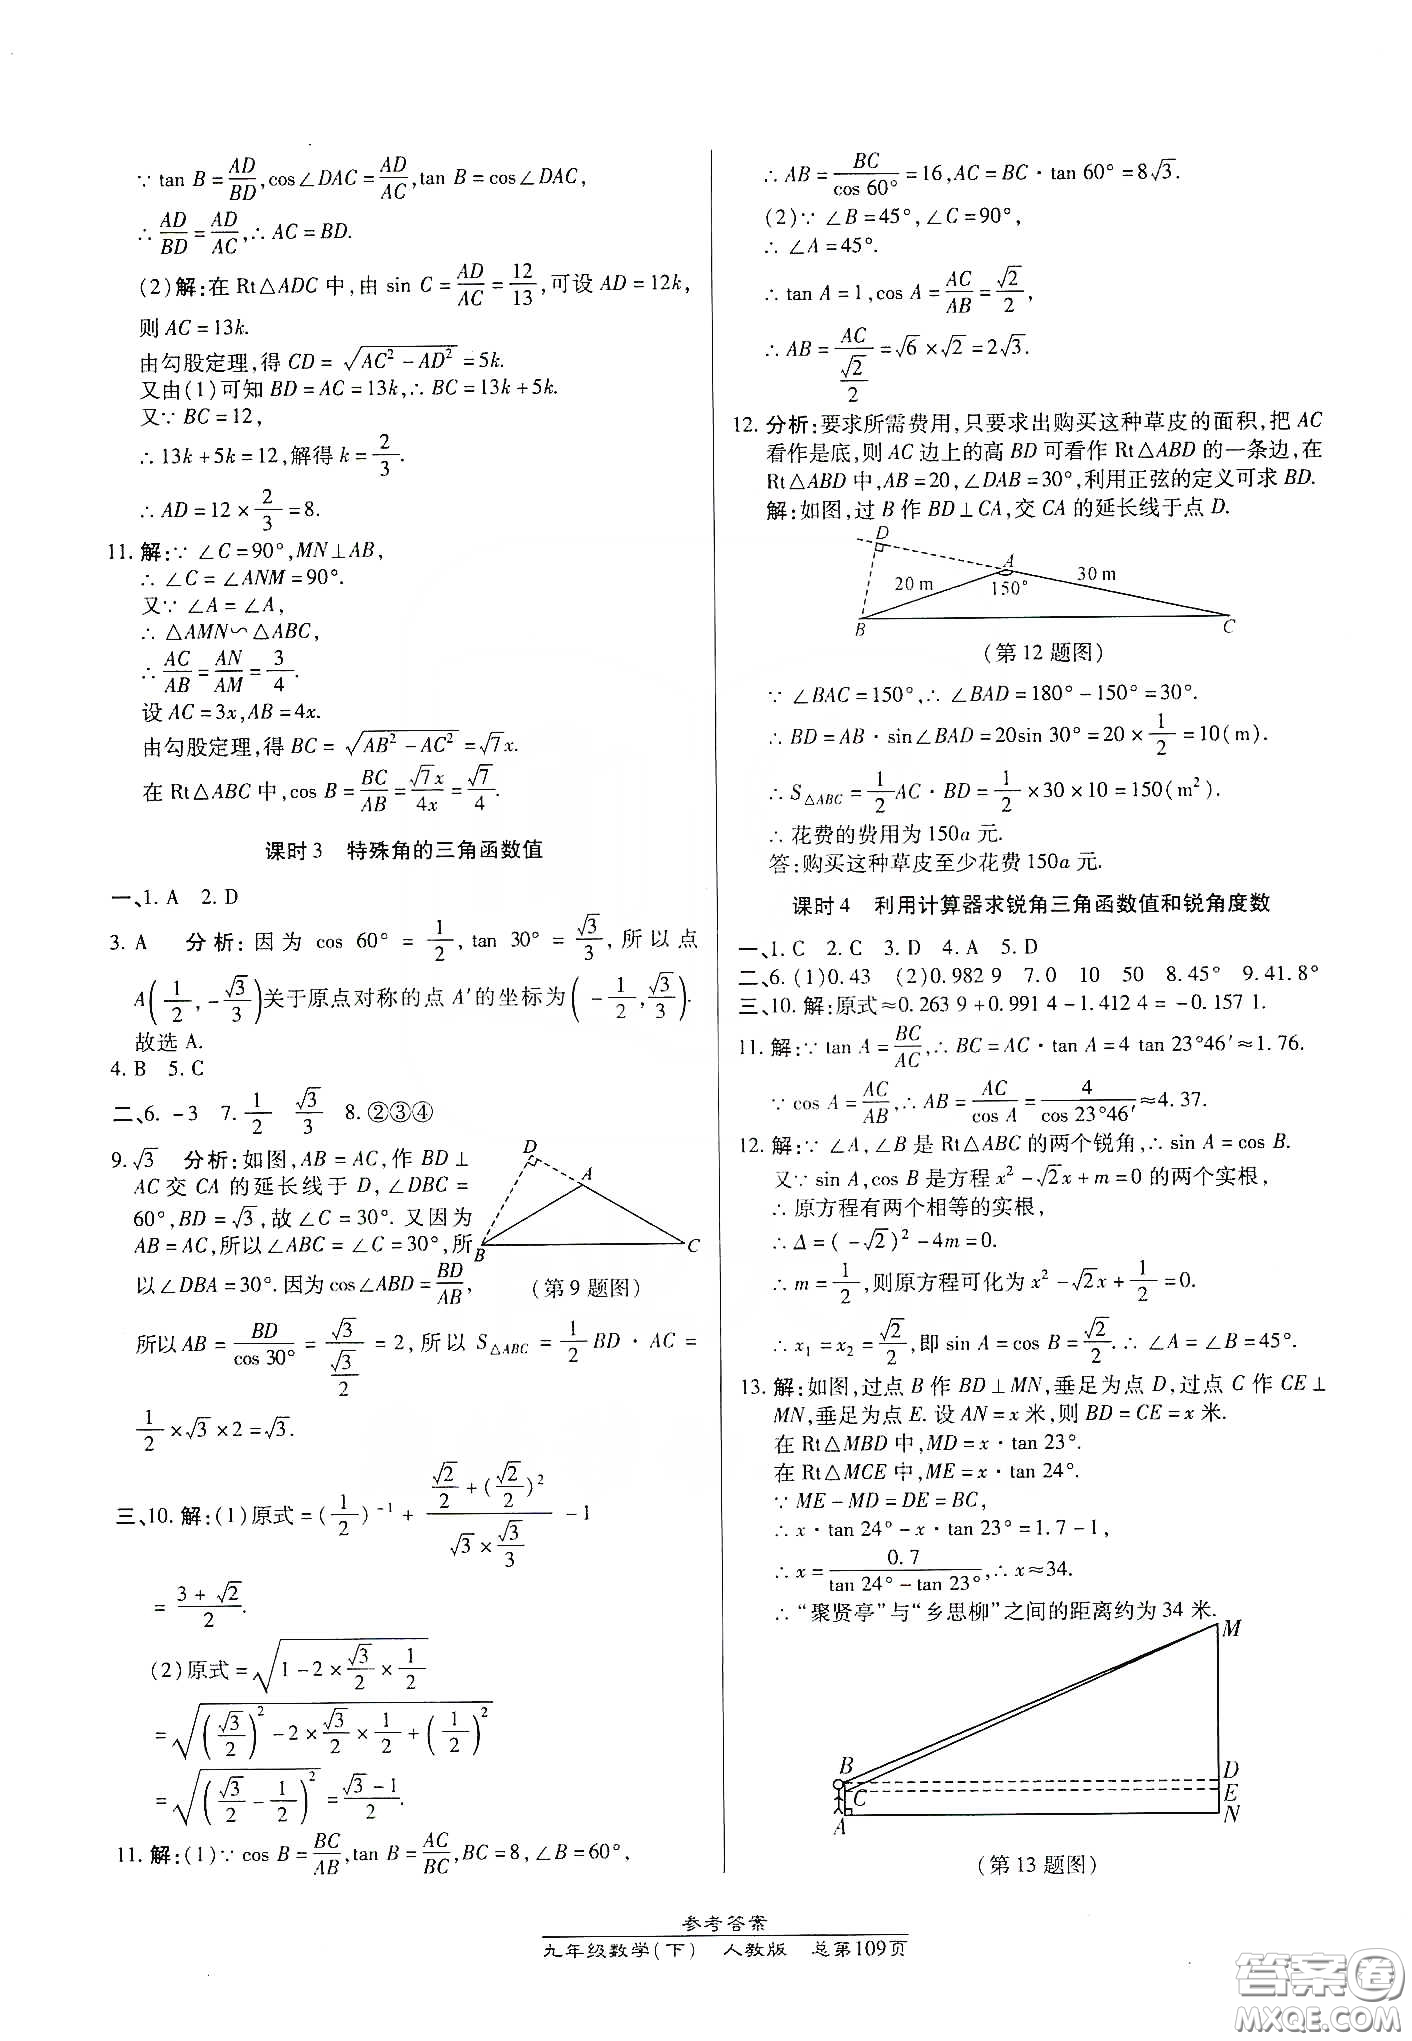 ∵ tan B = AD/BD, cos∠DAC = AD/AC, tan B = cos∠DAC,
∴ AD/BD = AD/AC, ∴ AC = BD.
(2)解:在 Rt△ADC 中,由 sin C = AD/AC = 12/13,可设 AD = 12k,
则 AC = 13k.
由勾股定理,得 CD = √(AC² − AD²) = 5k.
又由(1)可知 BD = AC = 13k, ∴ BC = 13k + 5k.
又∵ BC = 12,
∴ 13k + 5k = 12,解得 k = 2/3.
∴ AD = 12 × 2/3 = 8.
11. 解:∵ ∠C = 90°, MN⊥AB,
∴ ∠C = ∠ANM = 90°.
又∵ ∠A = ∠A,
∴ △AMN∽△ABC,
∴ AC/AB = AN/AM = 3/4.
设 AC = 3x, AB = 4x.
由勾股定理,得 BC = √(AB² − AC²) = √7x.
在 Rt△ABC 中, cos B = BC/AB = √7x/4x = √7/4.
课时3 特殊角的三角函数值
一、1. A 2. D
3. A 分析:因为 cos 60° = 1/2, tan 30° = √3/3,所以点
A(1/2, −√3/3)关于原点对称的点 A′的坐标为(−1/2, √3/3).
故选 A.
4. B 5. C
二、6. −3 7. 1/2 √3/3 8. ②③④
9. √3 分析:如图, AB = AC,作 BD⊥
AC 交 CA 的延长线于 D, ∠DBC =
60°, BD = √3,故∠C = 30°. 又因为
AB = AC,所以∠ABC = ∠C = 30°,所
以∠DBA = 30°. 因为 cos∠ABD = BD/AB,
D
A
B
C
(第9题图)
所以 AB = BD/cos 30° = √3/(√3/2) = 2,所以 S△ABC = 1/2 BD·AC =
1/2 × √3 × 2 = √3.
三、10. 解:(1)原式 = (1/2)⁻¹ + (√2/2 + (√2/2)²)/(√3 × √3/3) − 1
= (3 + √2)/2.
(2)原式 = √(1 − 2 × √3/2 × 1/2)
= √((√3/2)² − 2 × √3/2 × 1/2 + (1/2)²)
= √((√3/2 − 1/2)²) = (√3 − 1)/2.
11. 解:(1)∵ cos B = BC/AB, tan B = AC/BC, BC = 8, ∠B = 60°,
∴ AB = BC/cos 60° = 16, AC = BC·tan 60° = 8√3.
(2)∵ ∠B = 45°, ∠C = 90°,
∴ ∠A = 45°.
∴ tan A = 1, cos A = AC/AB = √2/2,
∴ AB = AC/(√2/2) = √6 × √2 = 2√3.
12. 分析:要求所需费用,只要求出购买这种草皮的面积,把 AC
看作是底,则 AC 边上的高 BD 可看作 Rt△ABD 的一条边,在
Rt△ABD 中, AB = 20, ∠DAB = 30°,利用正弦的定义可求 BD.
解:如图,过 B 作 BD⊥CA,交 CA 的延长线于点 D.
D
A
20 m
150°
30 m
B
C
(第12题图)
∵ ∠BAC = 150°, ∴ ∠BAD = 180° − 150° = 30°.
∴ BD = AB·sin∠BAD = 20sin 30° = 20 × 1/2 = 10(m).
∴ S△ABC = 1/2 AC·BD = 1/2 × 30 × 10 = 150(m²).
∴ 花费的费用为 150a 元.
答:购买这种草皮至少花费 150a 元.
课时4 利用计算器求锐角三角函数值和锐角度数
一、1. C 2. C 3. D 4. A 5. D
二、6. (1)0.43 (2)0.982 9 7. 0 10 50 8. 45° 9. 41.8°
三、10. 解:原式≈0.263 9 + 0.991 4 − 1.412 4 = −0.157 1.
11. 解:∵ tan A = BC/AC, ∴ BC = AC·tan A = 4 tan 23°46′≈1.76.
∵ cos A = AC/AB, ∴ AB = AC/cos A = 4/cos 23°46′≈4.37.
12. 解:∵ ∠A, ∠B 是 Rt△ABC 的两个锐角, ∴ sin A = cos B.
又∵ sin A, cos B 是方程 x² − √2x + m = 0 的两个实根,
∴ 原方程有两个相等的实根,
∴ Δ = (−√2)² − 4m = 0.
∴ m = 1/2,则原方程可化为 x² − √2x + 1/2 = 0.
∴ x₁ = x₂ = √2/2,即 sin A = cos B = √2/2. ∴ ∠A = ∠B = 45°.
13. 解:如图,过点 B 作 BD⊥MN,垂足为点 D,过点 C 作 CE⊥
MN,垂足为点 E. 设 AN = x 米,则 BD = CE = x 米.
在 Rt△MBD 中, MD = x·tan 23°.
在 Rt△MCE 中, ME = x·tan 24°.
∵ ME − MD = DE = BC,
∴ x·tan 24° − x·tan 23° = 1.7 − 1,
∴ x = 0.7/(tan 24° − tan 23°), ∴ x≈34.
∴ “聚贤亭”与“乡思柳”之间的距离约为 34 米.
M
B
D
C
E
A
N
(第13题图)
参考答案
九年级数学(下) 人教版 总第109页
答案卷
MXQE.COM